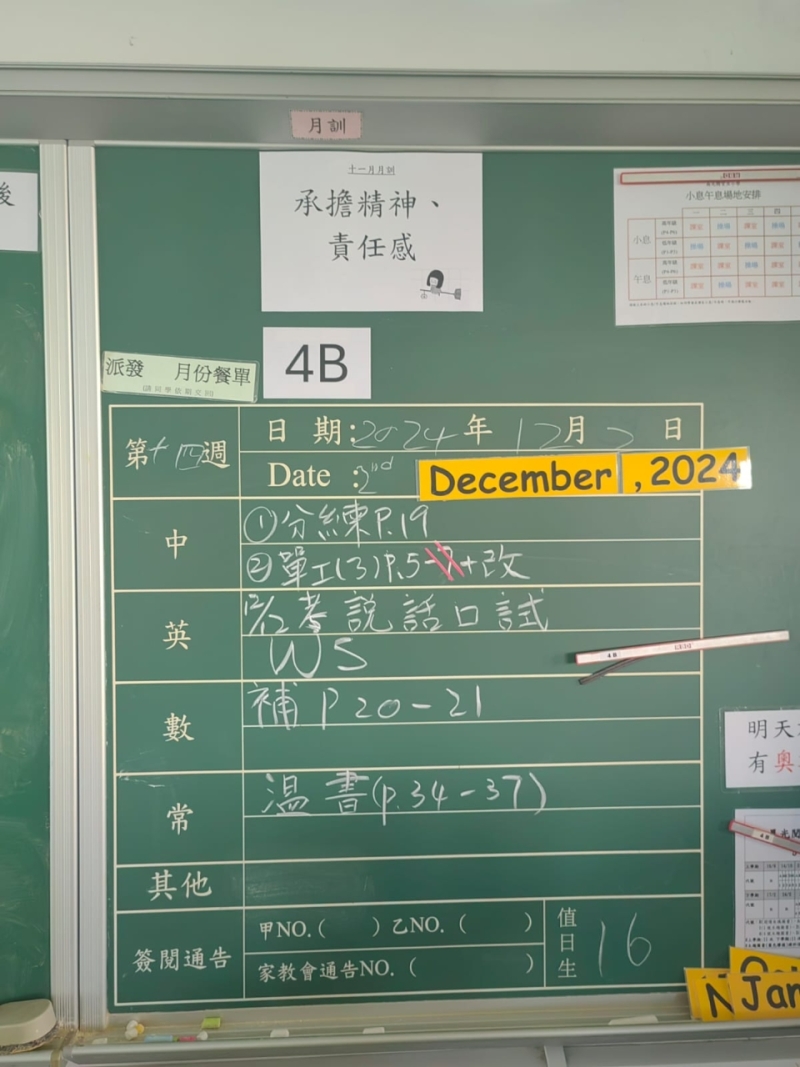 月訓
十一月月訓
承擔精神、
責任感
後
小息午息場地安排
一 二 三 四
小息
午息
派發 月份餐單
4B
第十四週
日 期:2024年 12月 2 日
Date :2nd December , 2024
中
①分練P.19
②單工(3)P.5-7+改
英
12/12考說話口試
WS
4B
數
補 P 20-21
明天
有奧
常
溫書(p.34-37)
4B
其他
簽閱通告
甲NO.( ) 乙NO.( )
家教會通告NO.( )
值日生
16
Jan